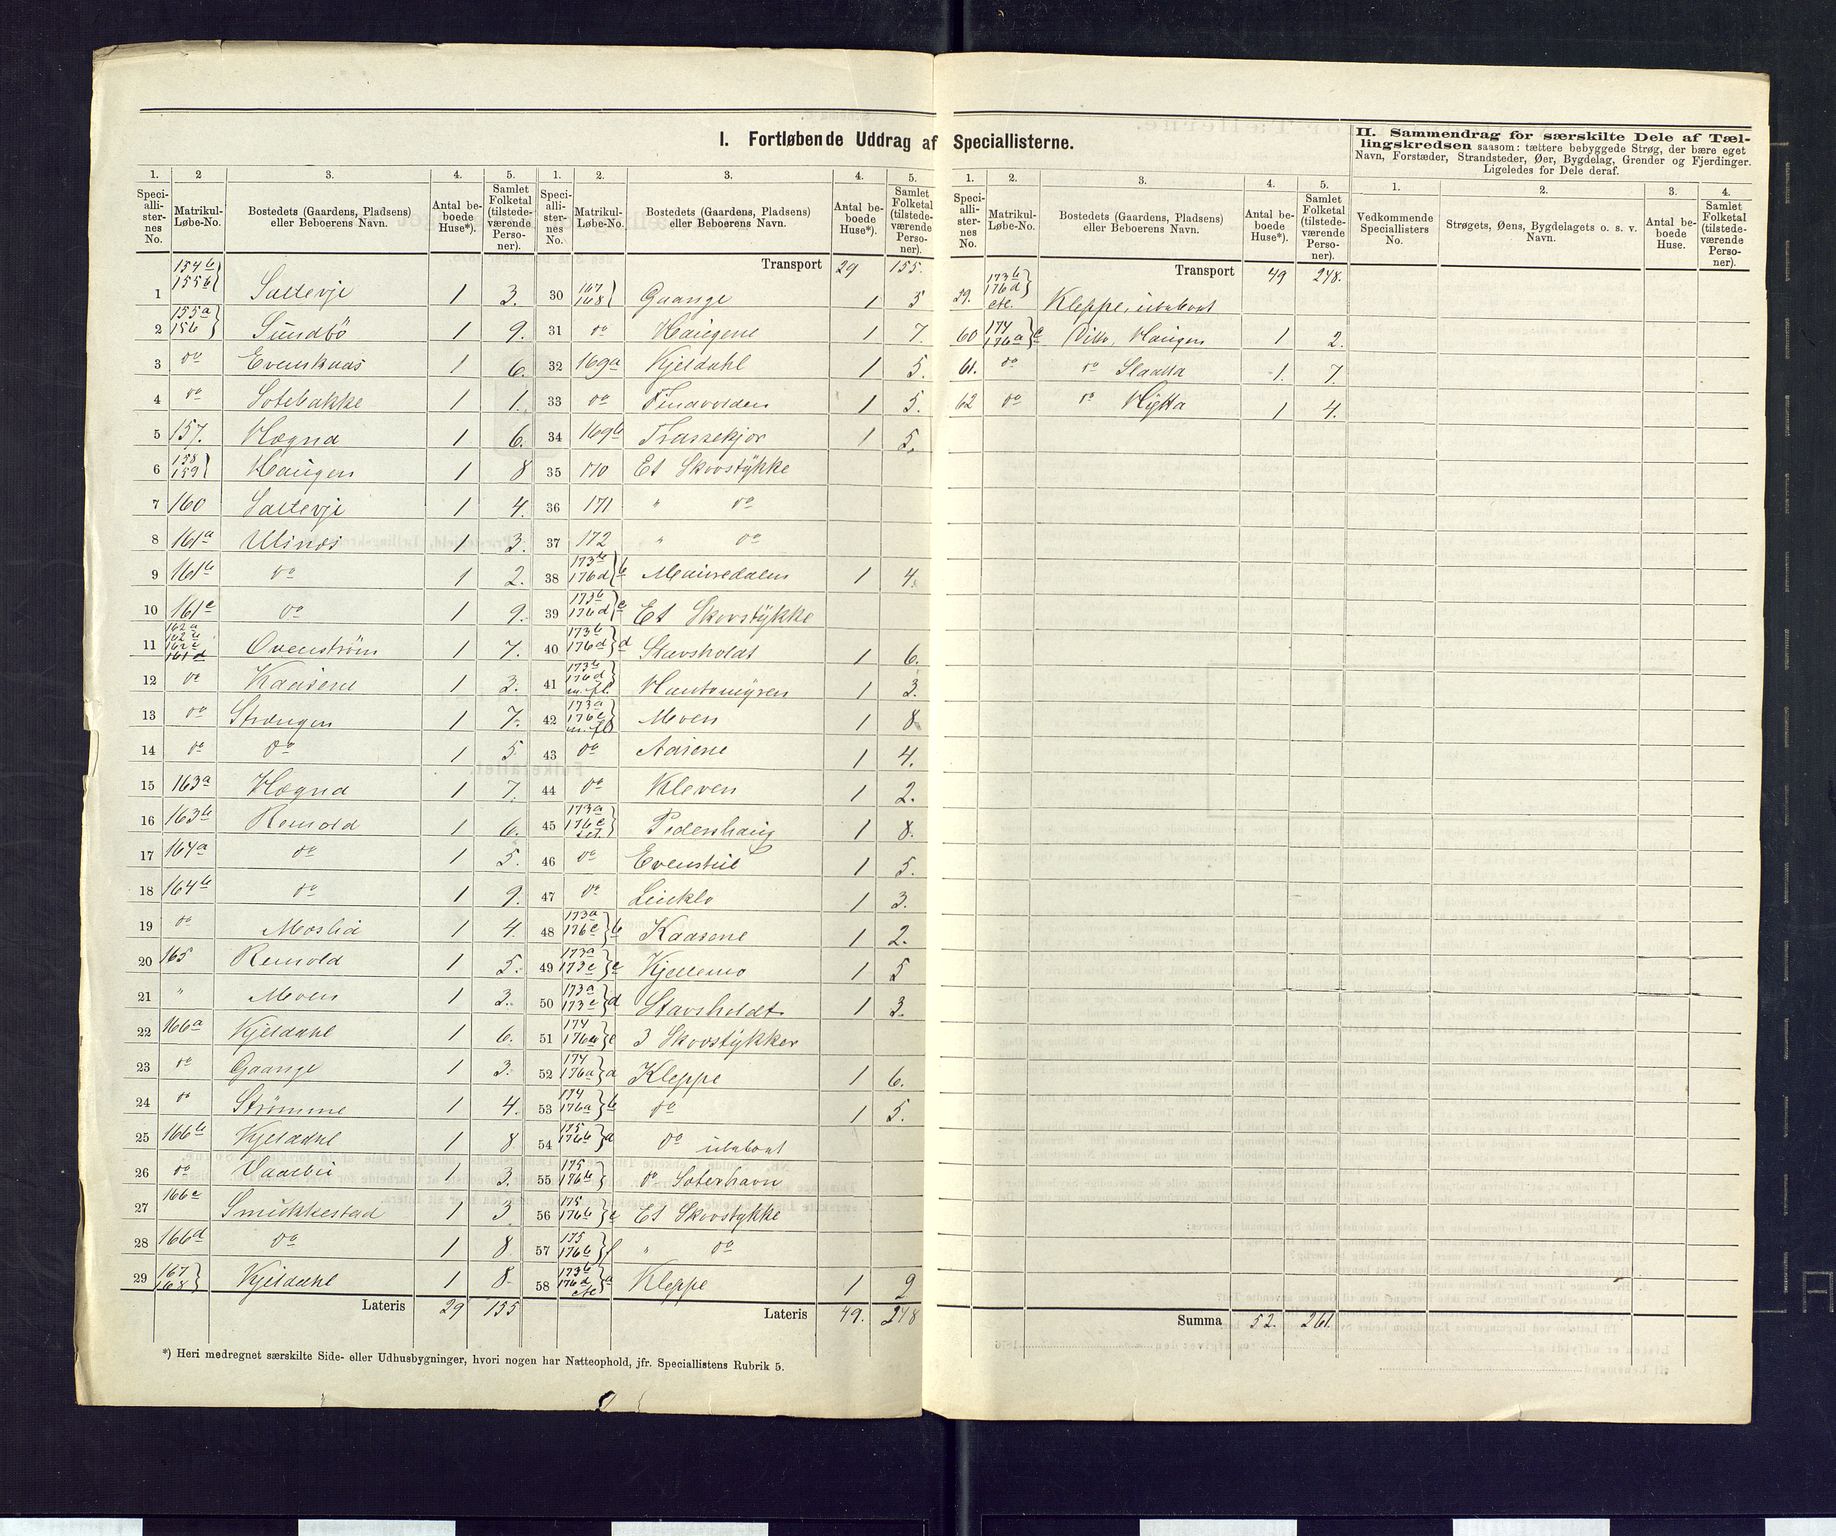 I. Fortløbende Uddrag af Speciallisterne.
II. Sammendrag for særskilte Dele af Tællingskredsen saasom: tættere bebyggede Strøg, der bære eget
Navn, Forstæder, Strandsteder, Øer, Bygdelag, Grender og Fjerdinger.
Ligeledes for Dele deraf.
1. 2 3. 4. 5.
Speciallisternes No. Matrikul-Løbe-No. Bostedets (Gaardens, Pladsens) eller Beboerens Navn. Antal beboede Huse*). Samlet Folketal (tilstedeværende Personer).
1 154b 155b } Saltevje 1 3.
2 155a 156 } Sundbö 1 9.
3 do Evenskaas 1 6.
4 do Sotebakke 1 1.
5 157. Hægna 1 6.
6 158 159 } Haugen 1 8
7 160 Saltevje 1 4.
8 161a Ulnæs 1 3.
9 161b do 1 2.
10 161c do 1 9.
11 162a 162b 162c 161d Ovenström 1 7.
12 do Kaasene 1 3.
13 do Strengen 1 7.
14 do do 1 5.
15 163a Hægna 1 7.
16 163b Remold 1 6.
17 164a do 1 5.
18 164b do 1 9.
19 do Moslid 1 4.
20 165 Remold 1 5.
21 " Moen 1 3.
22 166a Kjeldahl 1 6.
23 do Gaange 1 3.
24 do Strömme 1 4.
25 166b Kjeldahl 1 8
26 do 1 3.
27 166c Smukkestad 1 3
28 166d do 1 8
29 167 168 } Kjeldahl 1 8
Lateris 29 155
1. 2. 3. 4. 5.
Speciallisternes No. Matrikul-Løbe-No. Bostedets (Gaardens, Pladsens) eller Beboerens Navn. Antal beboede Huse*). Samlet Folketal (tilstedeværende Personer).
Transport 29 155.
30 167 168 } Gaange 1 5
31 do Haugene 1 7.
32 169a Kjeldahl 1 5.
33 do Tindvolden 1 5.
34 169b 1 5.
35 170 Et Skovstykke
36 171 " do
37 172 " do
38 173b 176d } b Mauredalen 1 4.
39 173b 176d } c Et Skovstykke
40 173b 176d } d Stavsholdt 1 6.
41 173b 176d m.fl. } Hantomyren 1 3.
42 173a 176c m.fl. } Moen 1 8
43 do Aasene 1 4.
44 do Kleven 1 2.
45 173a 176c } Pedershaug 1 8.
46 do 1 5.
47 do 1 3.
48 173a 176c } b Kaasene 1 2.
49 173a 173c } c Kjellemo 1 5
50 173a 173c } d Stavsholdt 1 3.
51 174 176a } c 3 Skovstykker
52 174 176a } a Kleppe 1 6.
53 174 176a } b do 1 5.
54 175 176b } a do ubeboet
55 175 176b } do Soterhavn
56 175 176b } c Et Skovstykke
57 175 176b } f " do
58 173b 176d etc } a Kleppe 1 9
Lateris 49. 248
1. 2. 3. 4. 5.
Speciallisternes No. Matrikul-Løbe-No. Bostedets (Gaardens, Pladsens) eller Beboerens Navn. Antal beboede Huse*). Samlet Folketal (tilstedeværende Personer).
Transport 49 248.
59. 173b 176d etc. } Kleppe, ubeboet
60 174 176a } c Ditto, Haugen 1 2.
61. do do Slaatta 1. 7.
62 do do Hytta 1 4.
Summa 52. 261.
1. 2. 3. 4.
Vedkommende Speciallisters No. Strøgets, Øens, Bygdelagets o. s. v. Navn. Antal beboede Huse. Samlet Folketal (tilstedeværende Personer).
*) Heri medregnet særskilte Side- eller Udhusbygninger, hvori nogen har Natteophold, jfr. Speciallistens Rubrik 5.